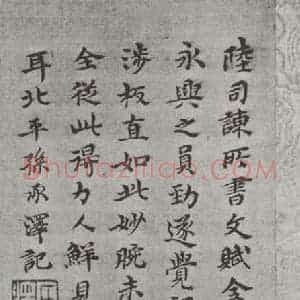 陸司諫所書文賦全
永興之員勁遂覺
涉板直如此妙腕未
全從此得力人鮮見
耳北平孫承澤記
shufaziliao.com